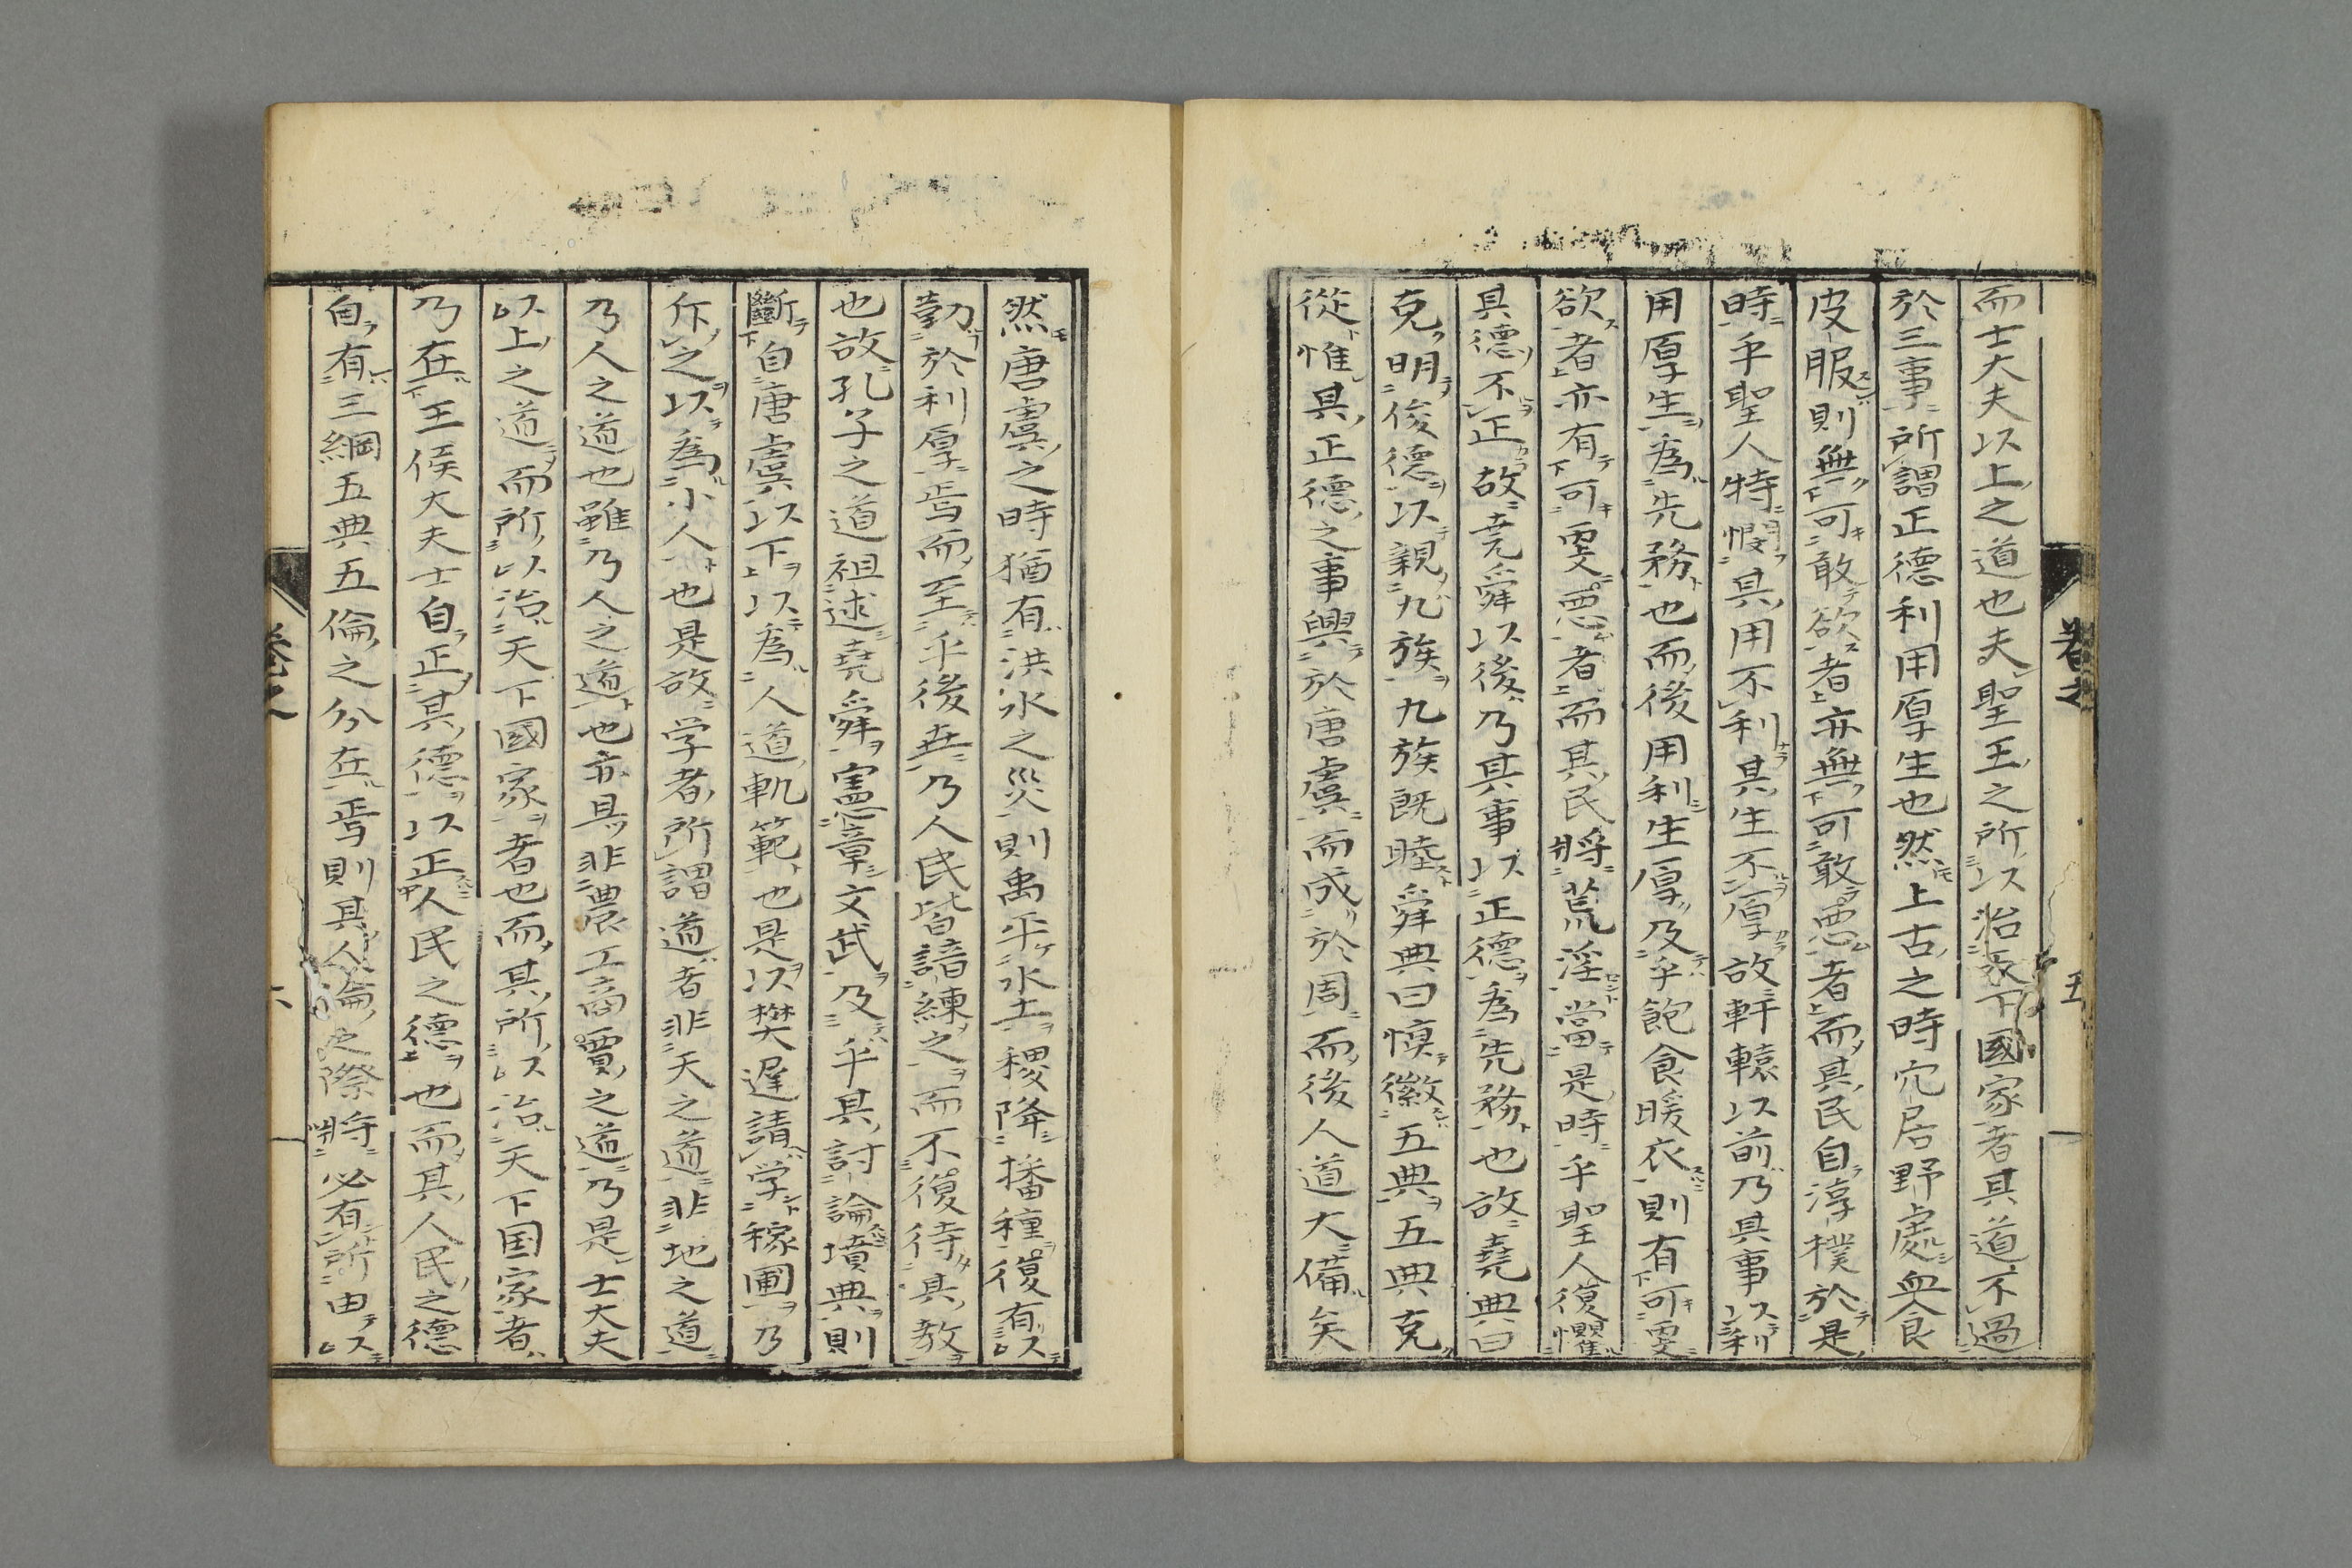 而士大夫以上之道也夫聖王之所以治天下國家者其道不過
於三事所謂正德利用厚生也然上古之時穴居野處血食
皮服則無可敢欲者亦無可敢惡者而其民自淳樸於是
時乎聖人特慍其用不利其生不厚故軒轅以前乃其事以利
用厚生為先務也而後用利生厚及乎飽食暖衣則有可愛
欲者亦有可愛惡者而其民將荒淫當是時乎聖人復懼
其德不正故堯舜以後乃其事以正德為先務也故堯典曰
克明俊德以親九族九族既睦舜典曰慎徽五典五典克
從惟其正德之事興於唐虞而成於周而後人道大備矣
卷之 五
然唐虞之時猶有洪水之災則禹平水土稷降播種復有以
勤於利厚焉而至乎後世乃人民皆諳練之而不復待其教
也故孔子之道祖述堯舜憲章文武及乎其討論墳典則
斷自唐虞以下以為人道軌範也是以樊遲請学稼圃乃
斥之以為小人也是故学者所謂道者非天之道非地之道
乃人之道也雖乃人之道也亦具非農工商賈之道乃是士大夫
以上之道而所以治天下國家者也而其所以治天下国家者
乃在王侯大夫士自正其德以正人民之德也而其人民之德
自有三綱五典五倫之分在焉則其人倫之際將必有所由以
卷之 六